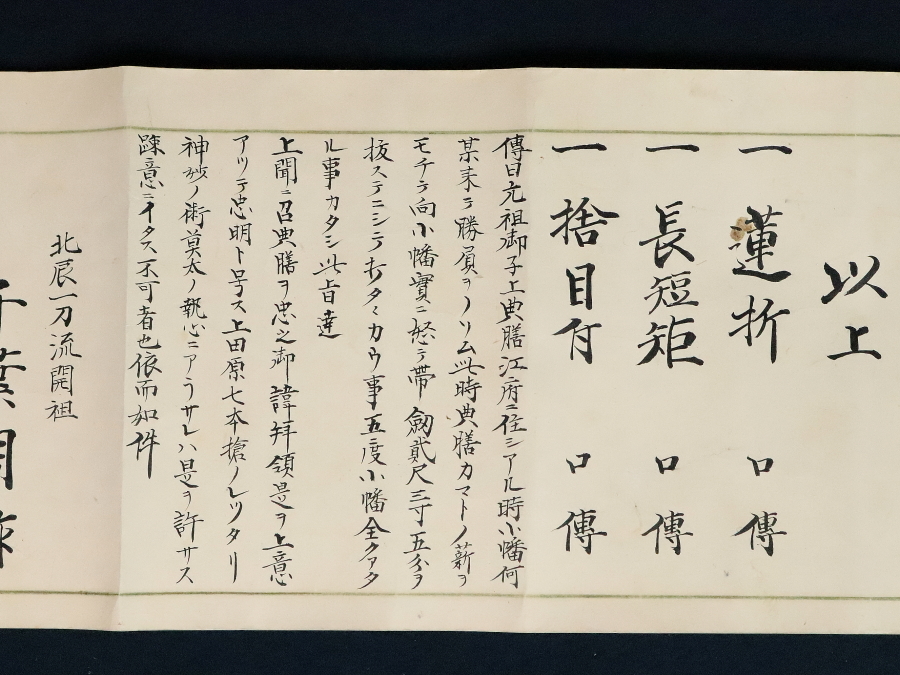 以上
一 蓮折 口傳
一 長短矩 口傳
一 捨目付 口傳
傳曰元祖御子上典膳江府ニ住シアル時小幡何
某来テ勝負ヲノソム此時典膳カマトノ薪ヲ
モチテ向小幡實ニ怒テ帯劔貳尺三寸五分ヲ
抜ステニシテ打タヽカウ事五ニ度小幡全クアタ
ル事カタシ此旨達
上聞ニ召典膳ヲ忠之御諱拜領是ヲ上意
アツテ忠明ト号ス上田原七本槍ノレツタリ
神妙ノ術莫太ノ執心ニアラサレハ是ヲ許サス
疎意ニイタス不可者也依而如件
北辰一刀流開祖
千葉周作